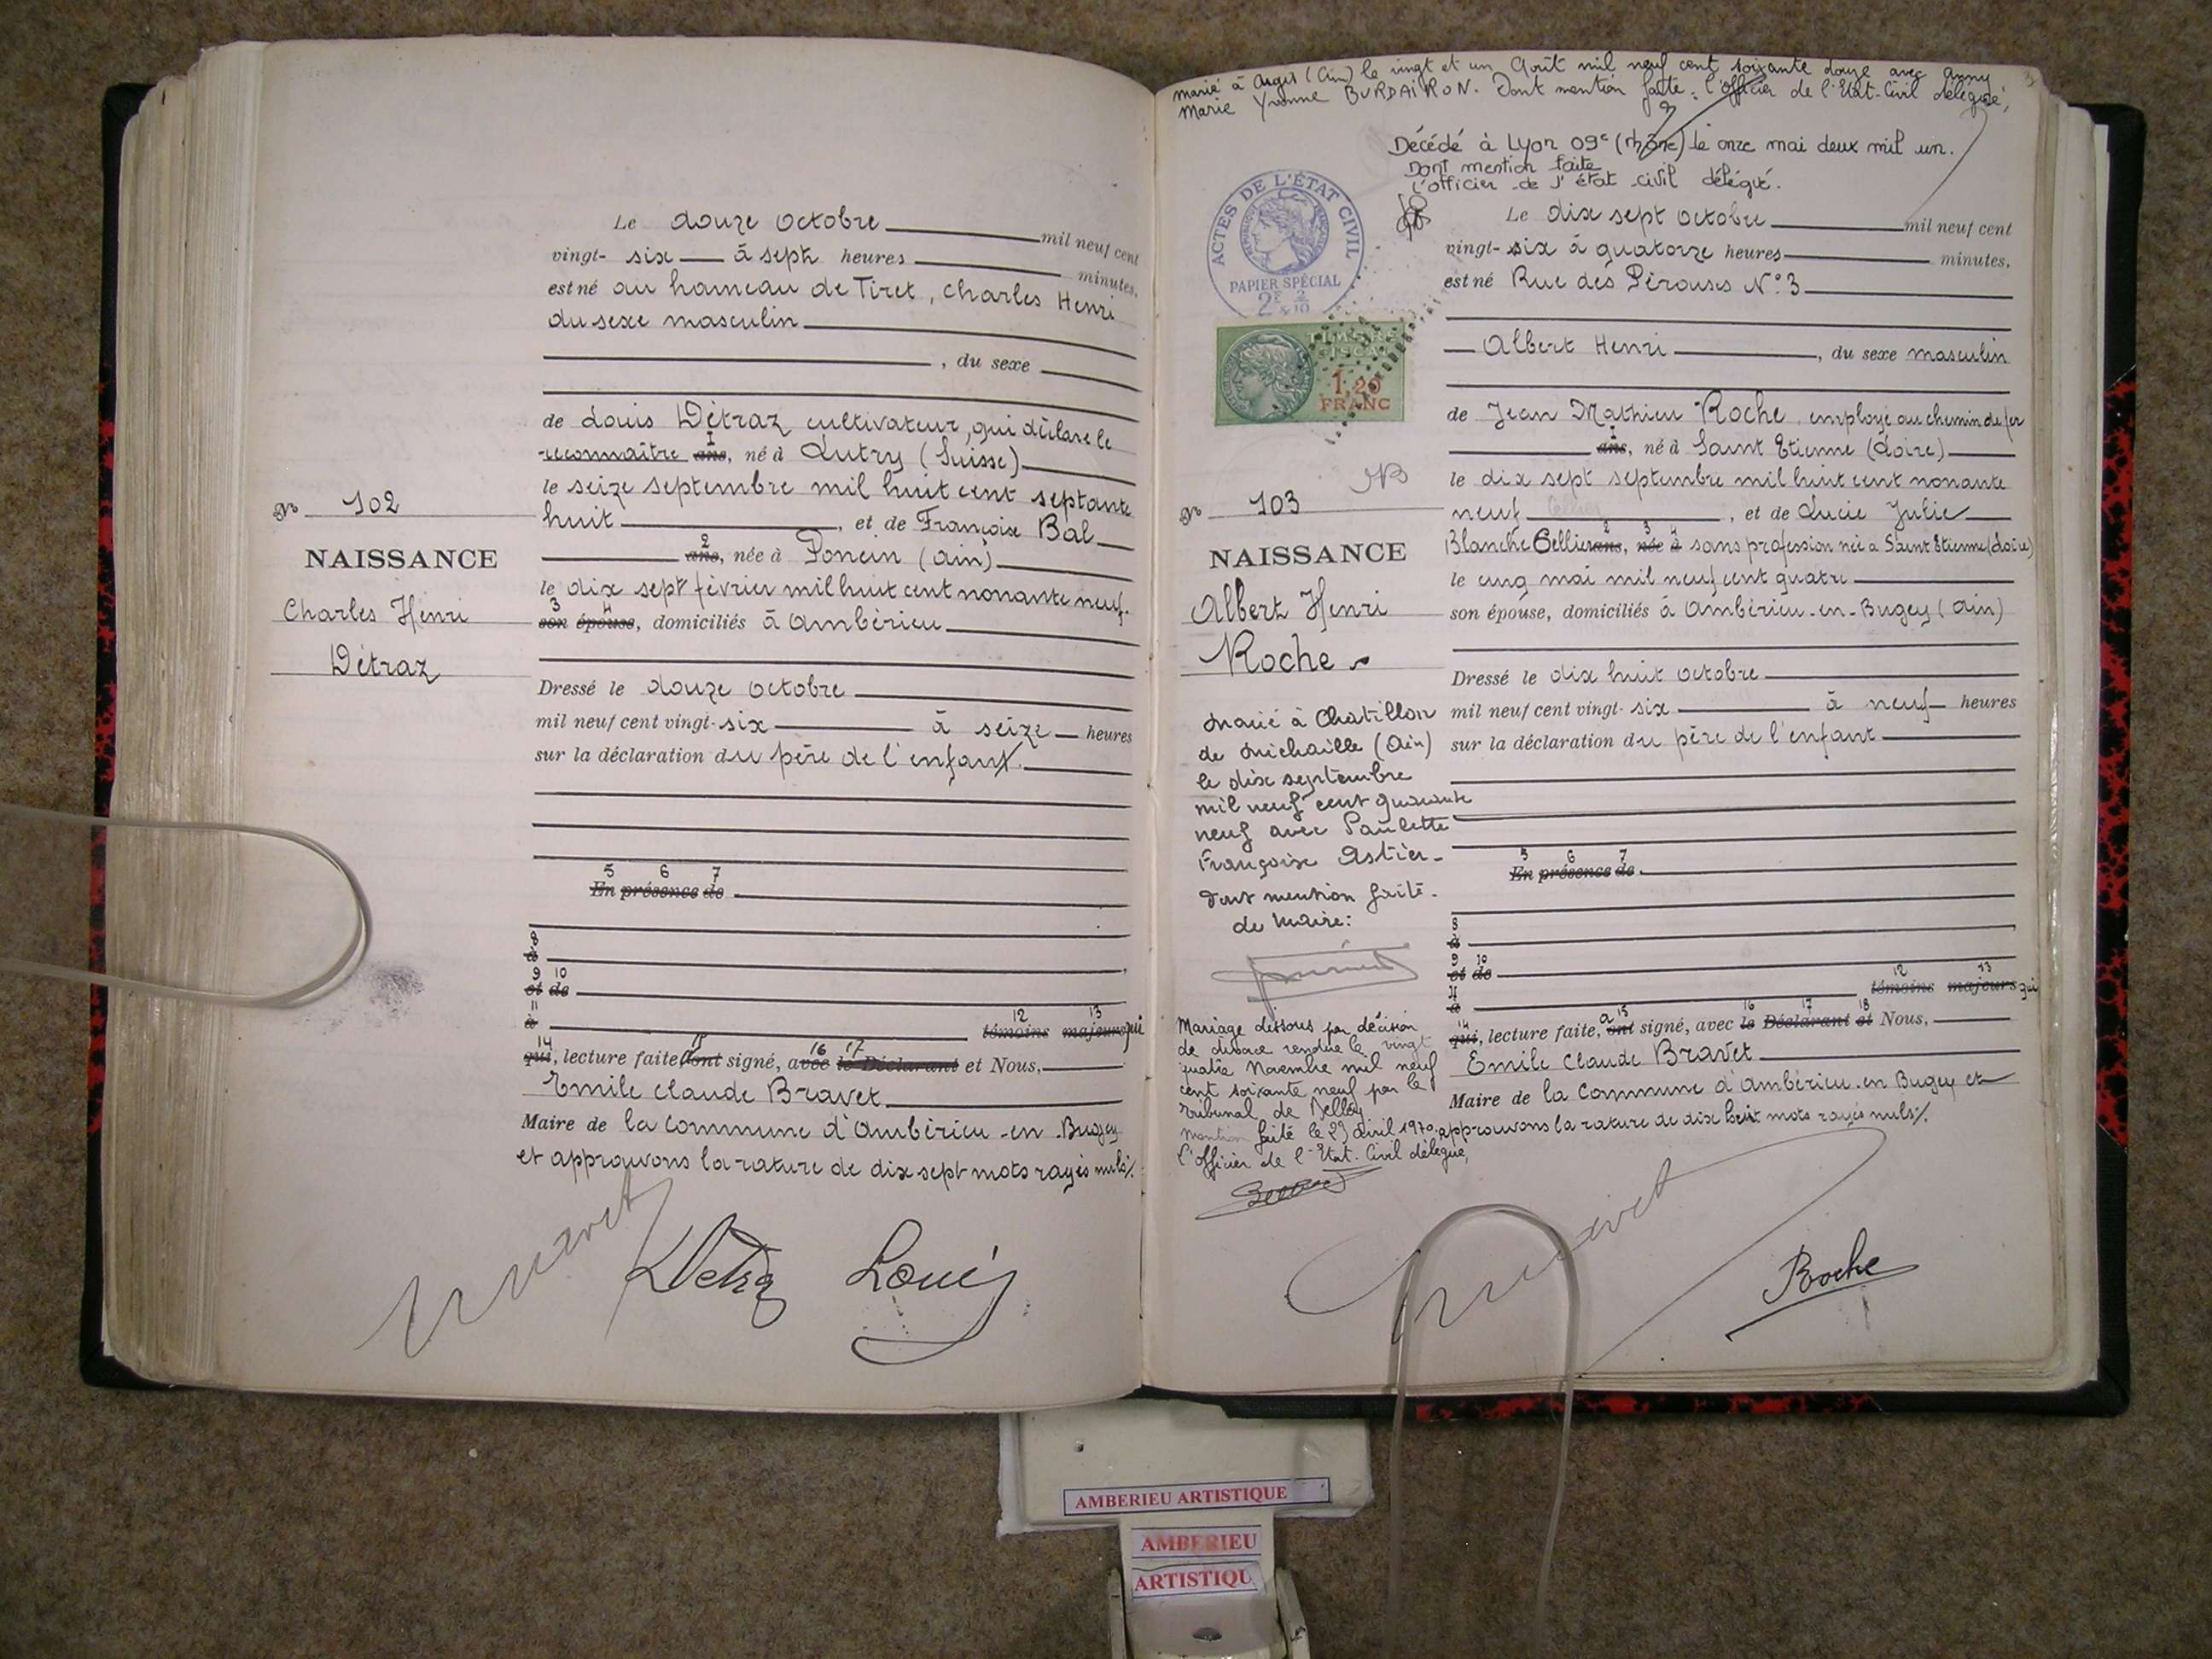 Le douze octobre mil neuf cent
vingt- six à sept heures minutes,
est né au hameau de Tiret, Charles Henri
du sexe masculin
, du sexe
de Louis Détraz cultivateur, qui déclare le
reconnaître ans, né à Lutry (Suisse)
le seize septembre mil huit cent septante
huit, et de Françoise Bal
ans, née à Poncin (ain)
le dix sept février mil huit cent nonante neuf.
son épouse, domiciliés à Ambérieu
Dressé le douze octobre
mil neuf cent vingt- six à seize heures
sur la déclaration du père de l'enfant.
5 6 7
En présence de
8
à
9 10
et de
11
à 12 13
témoins majeurs qui
14 15 16 17
qui, lecture faite, a ont signé, avec le Déclarant et Nous,
Emile Claude Bravet
Maire de la Commune d'Ambérieu-en-Bugey
et approuvons la rature de dix sept mots rayés nuls %.
Détraz Louis
No 102
NAISSANCE
Charles Henri
Détraz
marié à Argis (Ain) le vingt et un Août mil neuf cent soixante douze avec Anny
Marie Yvonne BURDAIRON. Dont mention faite : l'officier de l'Etat-Civil délégué,
Décédé à Lyon 09e (rhône) le onze mai deux mil un.
Dont mention faite
l'officier de l'état civil délégué.
ACTES DE L'ÉTAT CIVIL
PAPIER SPÉCIAL
2F 2/10
TIMBRE
FISCAL
1,20
FRANC
Le dix sept octobre mil neuf cent
vingt- six à quatorze heures minutes,
est né Rue des Pérouses N° 3
Albert Henri, du sexe masculin
de Jean Mathieu Roche employé au chemin de fer
ans, né à Saint Etienne (Loire)
le dix sept septembre mil huit cent nonante
neuf, et de Lucie Julie
Blanche Cellier ans, née à sans profession née à Saint Etienne (Loire)
le cinq mai mil neuf cent quatre
son épouse, domiciliés à Ambérieu-en-Bugey (Ain)
Dressé le dix huit octobre
mil neuf cent vingt- six à neuf heures
sur la déclaration du père de l'enfant
5 6 7
En présence de
8
à
9 10
et de
11
à 12 13
témoins majeurs qui
14 15 16 17 18
qui, lecture faite, a ont signé, avec le Déclarant et Nous,
Emile Claude Bravet
Maire de la Commune d'Ambérieu-en-Bugey et
approuvons la rature de dix huit mots rayés nuls %.
Roche
No 103
NAISSANCE
Albert Henri
Roche
Marié à Chatillon
de Michaille (Ain)
le dix septembre
mil neuf cent quarante
neuf avec Paulette
Françoise Astier-
Dont mention faite.
Le Maire:
Mariage dissous par décision
de divorce rendue le vingt
quatre Novembre mil neuf
cent soixante neuf par le
Tribunal de Belley
Mention faite le 29 avril 1970
l'Officier de l'Etat-Civil délégué,
AMBERIEU ARTISTIQUE
AMBERIEU
ARTISTIQU